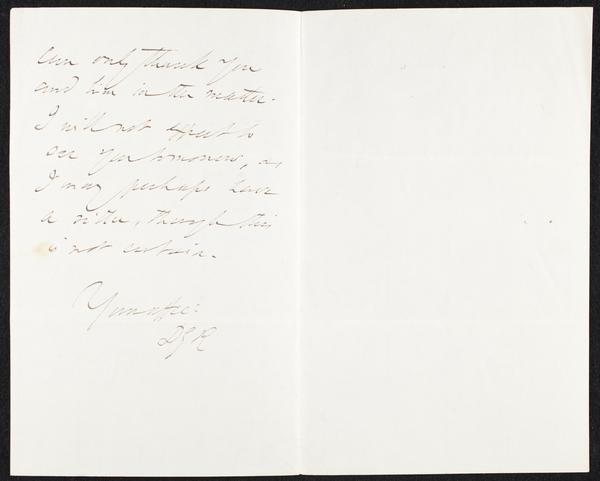 can only thank you
and him in the matter.
I will not expect to
see you tomorrow, as
I may perhaps have
a sitter, though this
is not certain.
Your affec:
DGR